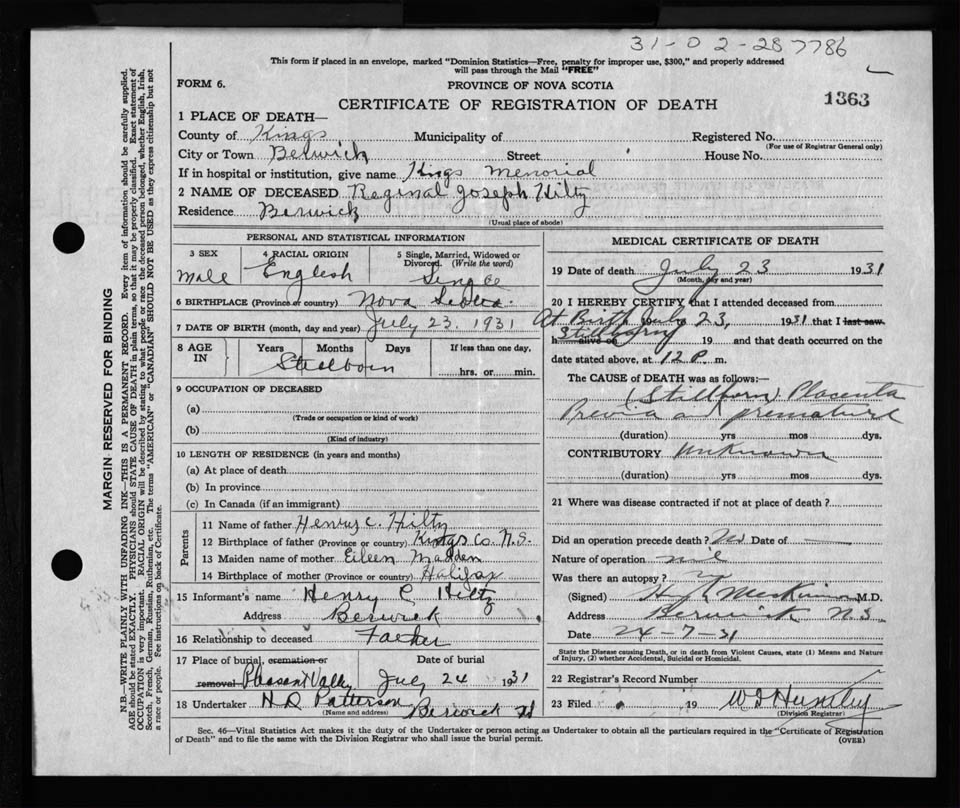 31-02-28 7786
This form if placed in an envelope, marked "Dominion Statistics—Free, penalty for improper use, $300," and properly addressed
will pass through the Mail "FREE"
FORM 6.
PROVINCE OF NOVA SCOTIA
CERTIFICATE OF REGISTRATION OF DEATH
1363
1 PLACE OF DEATH—
County of Kings Municipality of Registered No.
(For use of Registrar General only)
City or Town Berwick Street House No.
If in hospital or institution, give name Kings Memorial
2 NAME OF DECEASED Reginal Joseph Hiltz
Residence Berwick
(Usual place of abode)
PERSONAL AND STATISTICAL INFORMATION
3 SEX 4 RACIAL ORIGIN 5 Single, Married, Widowed or
Divorced. (Write the word)
Male English Single
6 BIRTHPLACE (Province or country) Nova Scotia.
7 DATE OF BIRTH (month, day and year) July 23. 1931
8 AGE IN Years Months Days If less than one day,
Stillborn hrs. or min.
9 OCCUPATION OF DECEASED
(a)
(Trade or occupation or kind of work)
(b)
(Kind of industry)
10 LENGTH OF RESIDENCE (in years and months)
(a) At place of death
(b) In province
(c) In Canada (if an immigrant)
Parents
11 Name of father Henry C. Hiltz
12 Birthplace of father (Province or country) Kings Co N.S.
13 Maiden name of mother Eileen Madden
14 Birthplace of mother (Province or country) Halifax
15 Informant's name Henry C Hiltz
Address Berwick
16 Relationship to deceased Father
17 Place of burial, cremation or Date of burial
removal Pleasant Valley July 24 1931
18 Undertaker N.D. Patterson
(Name and address) Berwick
MEDICAL CERTIFICATE OF DEATH
19 Date of death July 23 1931
(Month, day and year)
20 I HEREBY CERTIFY that I attended deceased from
At Birth July 23, 1931 that I last saw
h alive on Stillborn 19 and that death occurred on the
date stated above, at 12 P. m.
The CAUSE OF DEATH was as follows:—
(Stillborn) Placenta
Previa and premature
(duration) yrs mos dys.
CONTRIBUTORY Unknown
(duration) yrs. mos. dys.
21 Where was disease contracted if not at place of death?
Did an operation precede death? Date of
Nature of operation nil
Was there an autopsy?
(Signed) M.D.
Address Berwick N.S
Date 24-7-31
State the Disease causing Death, or in death from Violent Causes, state (1) Means and Nature
of Injury, (2) whether Accidental, Suicidal or Homicidal.
22 Registrar's Record Number
23 Filed 19
(Division Registrar)
Sec. 46—Vital Statistics Act makes it the duty of the Undertaker or person acting as Undertaker to obtain all the particulars required in the "Certificate of Registration
of Death" and to file the same with the Division Registrar who shall issue the burial permit.
(OVER)
MARGIN RESERVED FOR BINDING
N.B.—WRITE PLAINLY WITH UNFADING INK—THIS IS A PERMANENT RECORD. Every item of information should be carefully supplied.
AGE should be stated EXACTLY. PHYSICIANS should STATE CAUSE OF DEATH in plain terms, so that it may be properly classified. Exact statement of
OCCUPATION is very important. RACIAL ORIGIN will be described by stating to what people or race the deceased person belonged, whether English, Irish,
Scotch, French, German, Russian, Ruthenian, etc. The terms "AMERICAN" or "CANADIAN" SHOULD NOT BE USED as they express citizenship but not
a race or people. See instructions on back of Certificate.